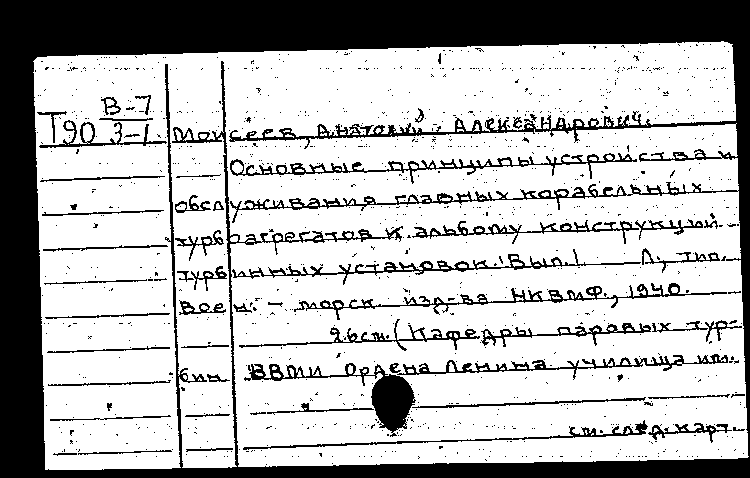 В-7
Т90 3-1. Моисеев, Анатолий Александрович.
Основные принципы устройства и
обслуживания главных корабельных
турбоагрегатов к альбому конструкций
турбинных установок. Вып. 1 Л., тип.
Воен. - морск. изд-ва НКВМФ., 1940.
26 ст. (Кафедры паровых тур-
бин ВВМИ Ордена Ленина училища им.
см. след. карт.